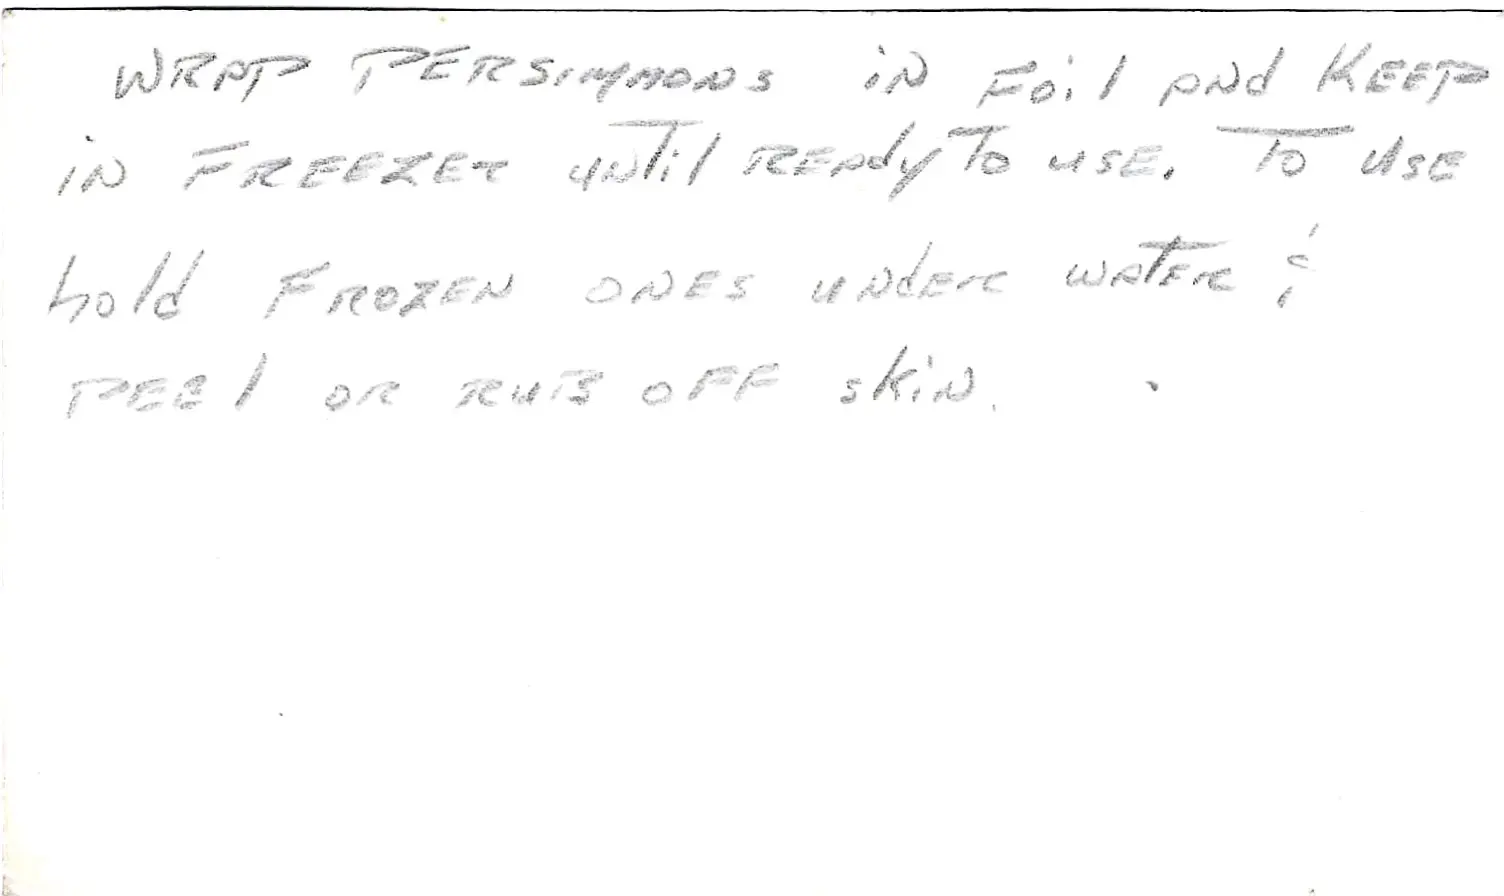 WRAP PERSIMMONS iN Foil ANd KEEP
iN FREEZER UNTil READy To USE. To USE
hold FROZEN ONES UNdER WATER &
PEEl OR RUB OFF skiN.